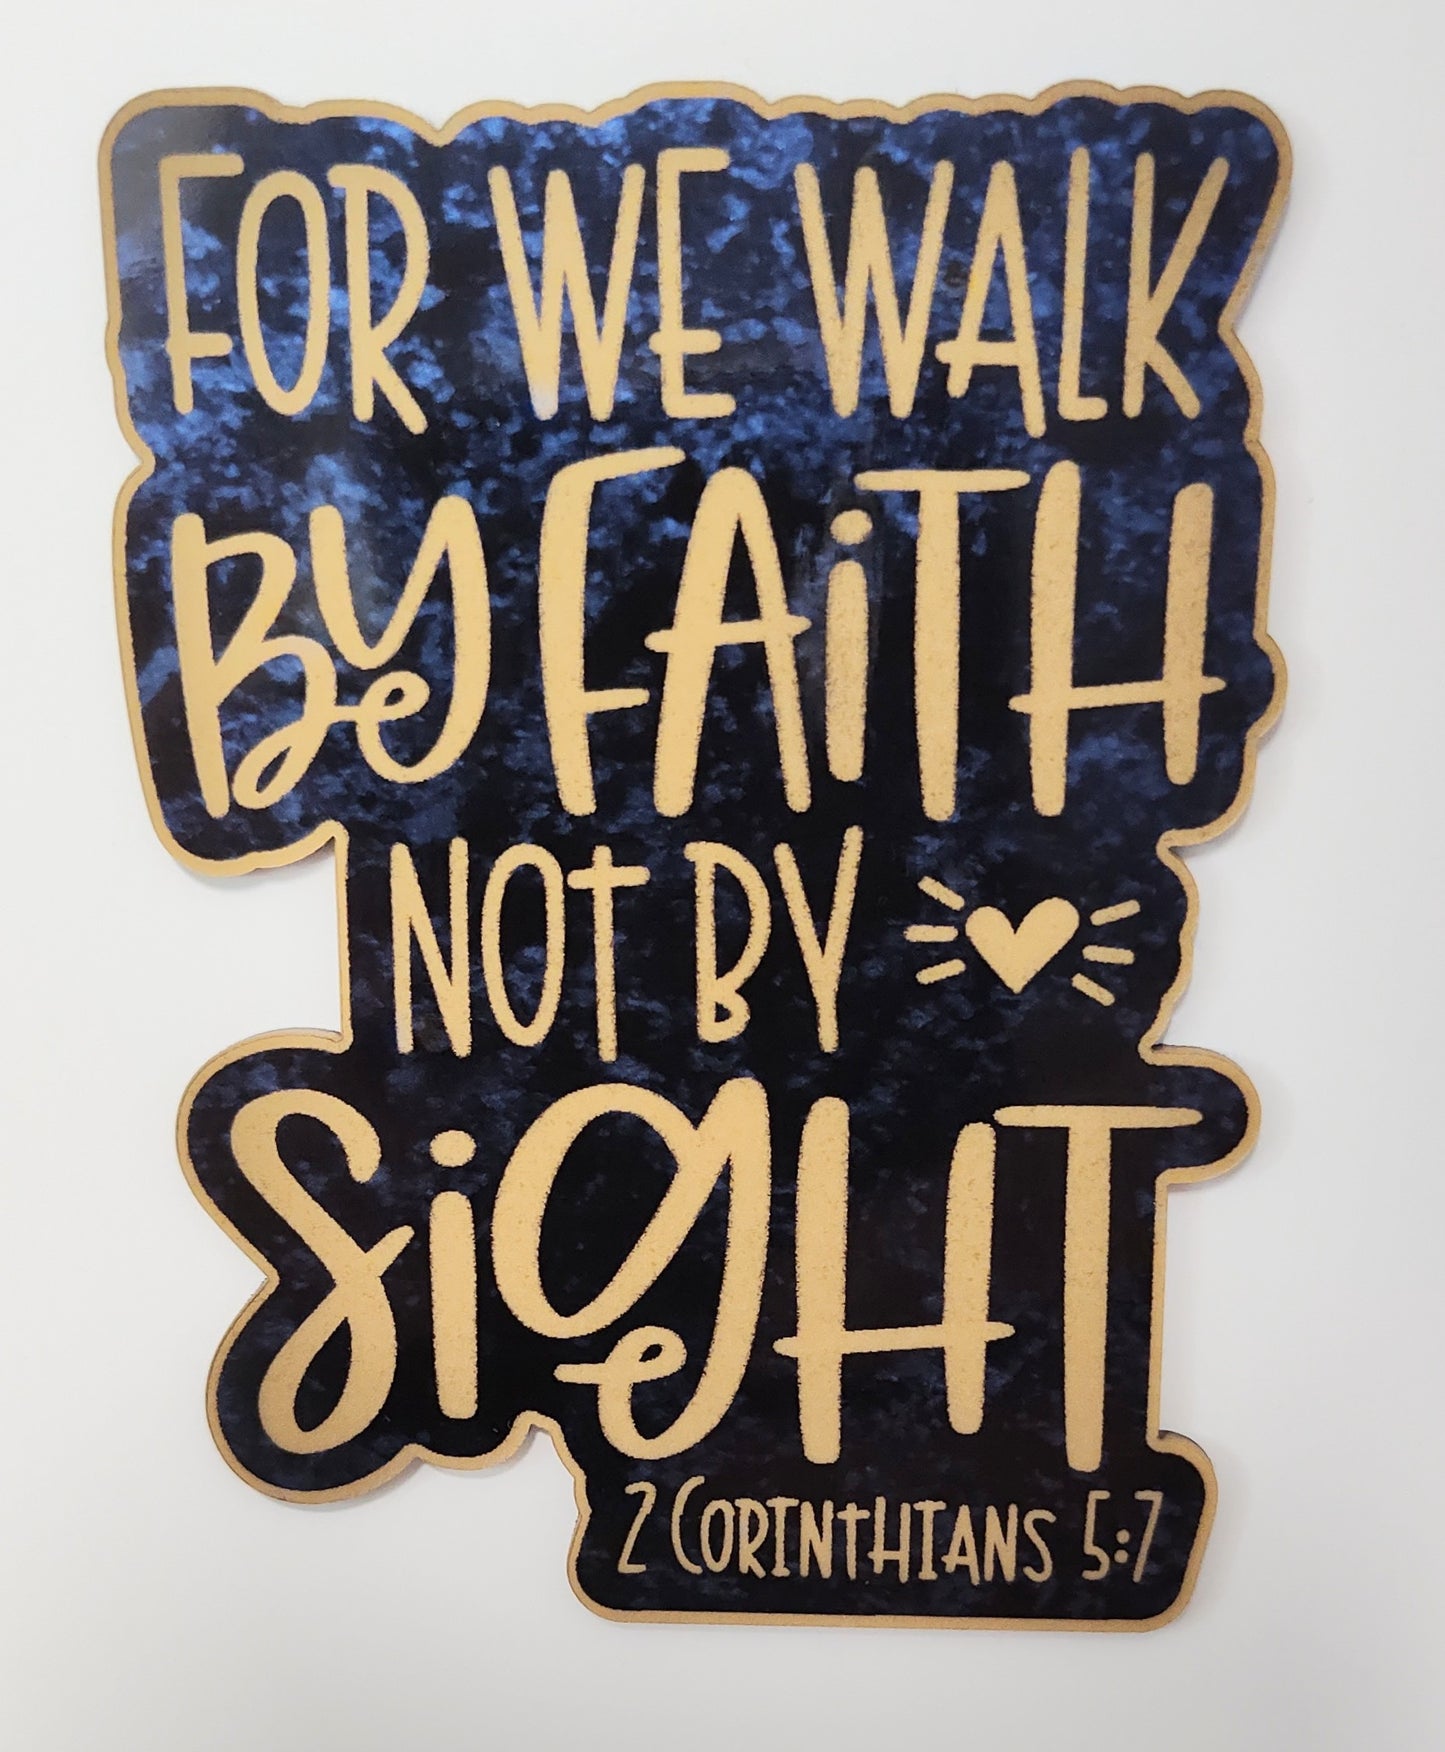 FOR WE WALK
By FAiTH
NOT BY
SiGHT
2 CORINTHIANS 5:7